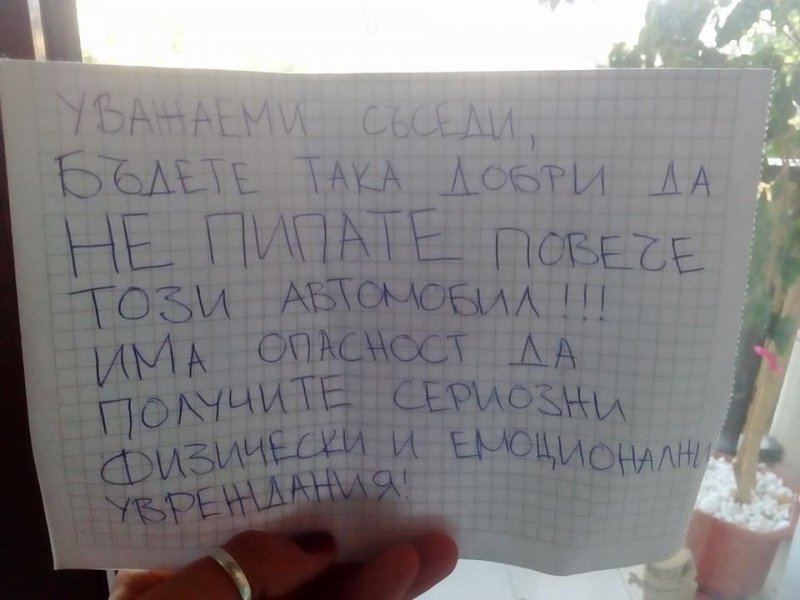 УВАЖАЕМИ СЪСЕДИ,
БЪДЕТЕ ТАКА ДОБРИ ДА
НЕ ПИПАТЕ ПОВЕЧЕ
ТОЗИ АВТОМОБИЛ!!!
ИМА ОПАСНОСТ ДА
ПОЛУЧИТЕ СЕРИОЗНИ
ФИЗИЧЕСКИ И ЕМОЦИОНАЛНИ
УВРЕЖДАНИЯ!